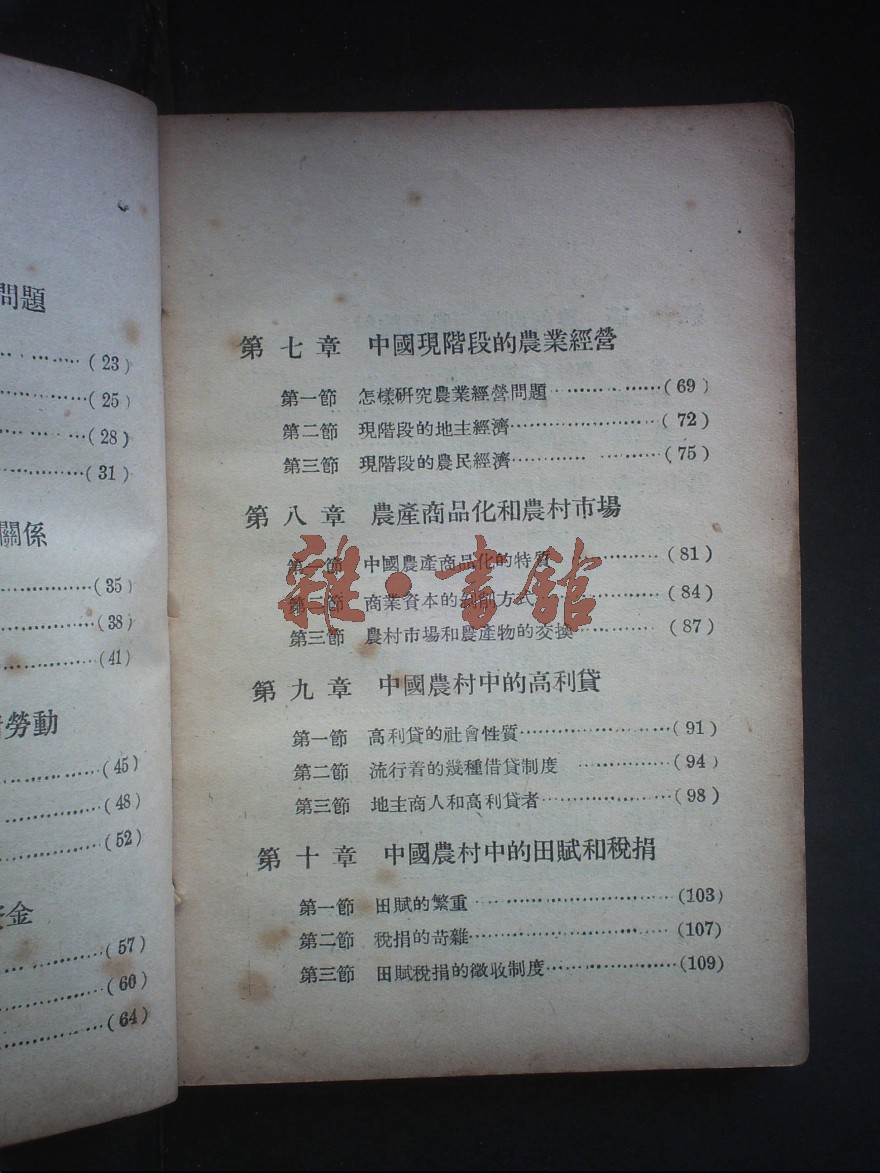 問題
(23)
(25)
(28)
(31)
關係
(35)
(38)
(41)
勞動
(45)
(48)
(52)
金
(57)
(60)
(64)
第七章 中國現階段的農業經營
第一節 怎樣研究農業經營問題………………(69)
第二節 現階段的地主經濟………………(72)
第三節 現階段的農民經濟………………(75)
第八章 農產商品化和農村市場
第一節 中國農產商品化的特質………………(81)
第二節 商業資本的剝削方式………………(84)
第三節 農村市場和農產物的交換………………(87)
第九章 中國農村中的高利貸
第一節 高利貸的社會性質………………(91)
第二節 流行着的幾種借貸制度………………(94)
第三節 地主商人和高利貸者………………(98)
第十章 中國農村中的田賦和稅捐
第一節 田賦的繁重………………(103)
第二節 稅捐的苛雜………………(107)
第三節 田賦稅捐的徵收制度………………(109)
雜·書館